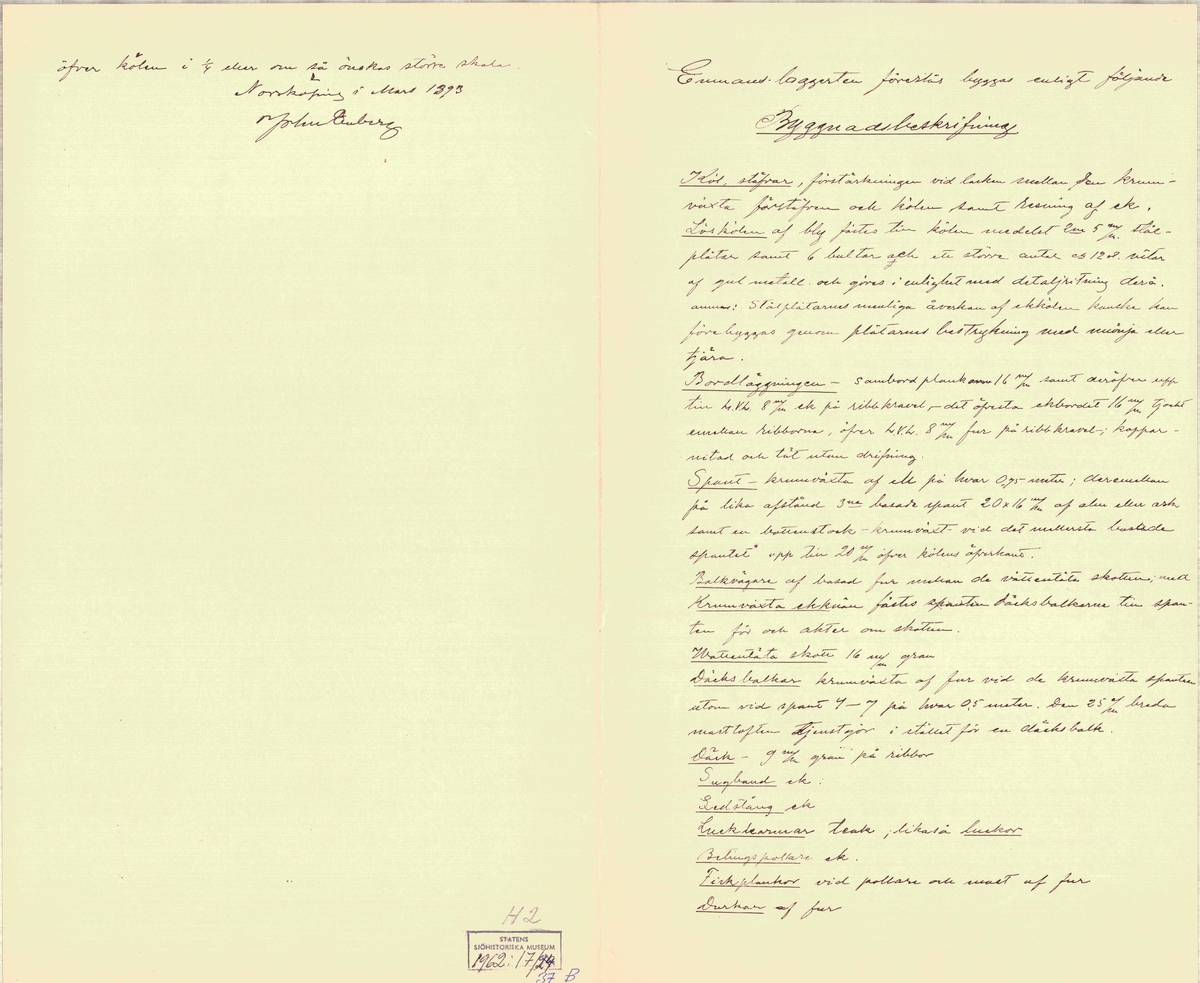 öfver kölen i 1/4 eller om så önskas större skala.
Norrköping i Mars 1893
John Enberg
H 2
STATENS
SJÖHISTORISKA MUSEUM
1962: 17/24
37 B
Enmans-loggerten föreslås byggas enligt följande
Byggnadsbeskrifning
Köl, stäfvar, förstärkningen vid lasken mellan den krum-
växta förstäfven och kölen samt resning af ek.
Lösköln af bly fästes till kölen medelst 2ne 5 m/m stål-
plåtar samt 6 bultar och ett större antal nitar
af gul metall och göres i enlighet med detaljritning derå.
anm: Stålplåtarnes menliga åverkan af ekkölen kanske kan
förebyggas genom plåtarnes bestrykning med mönja eller
tjära.
Bordläggningen – sambordplankan 16 m/m samt deröfver upp
till L.V.L. 8 m/m ek på ribbkravel, – det öfversta ekbordet 16 m/m tjockt
emellan ribborna, öfver L.V.L. 8 m/m fur på ribbkravel; koppar-
nitad och tät utan drifning.
Spant – krumväxta af ek på hvar 0,75 meter; deremellan
på lika afstånd 3ne basade spant 20x16 m/m af alm eller ask
samt en bottenstock – krumväxt – vid det mellersta basade
spantet upp till 20 m/m öfver kölens öfverkant.
Balkvägare af basad fur mellan de vattentäta skotten; med
Krumväxta ekknän fästes däcksbalkarne till span-
ten för och akter om skotten.
Wattentäta skott 16 m/m gran
Däcksbalkar krumväxta af fur vid de krumväxta spanten
utom vid spant 4–7 på hvar 0,5 meter. Den 25 m/m breda
masttoften tjenstgör i stället för en däcksbalk.
Däck – 9 m/m gran på ribbor
Sugband ek.
Ledstång ek
Luckkarmar teak, likaså luckor
Betingspollare ek.
Fiskplankor vid pollare och mast af fur
Durkar af fur